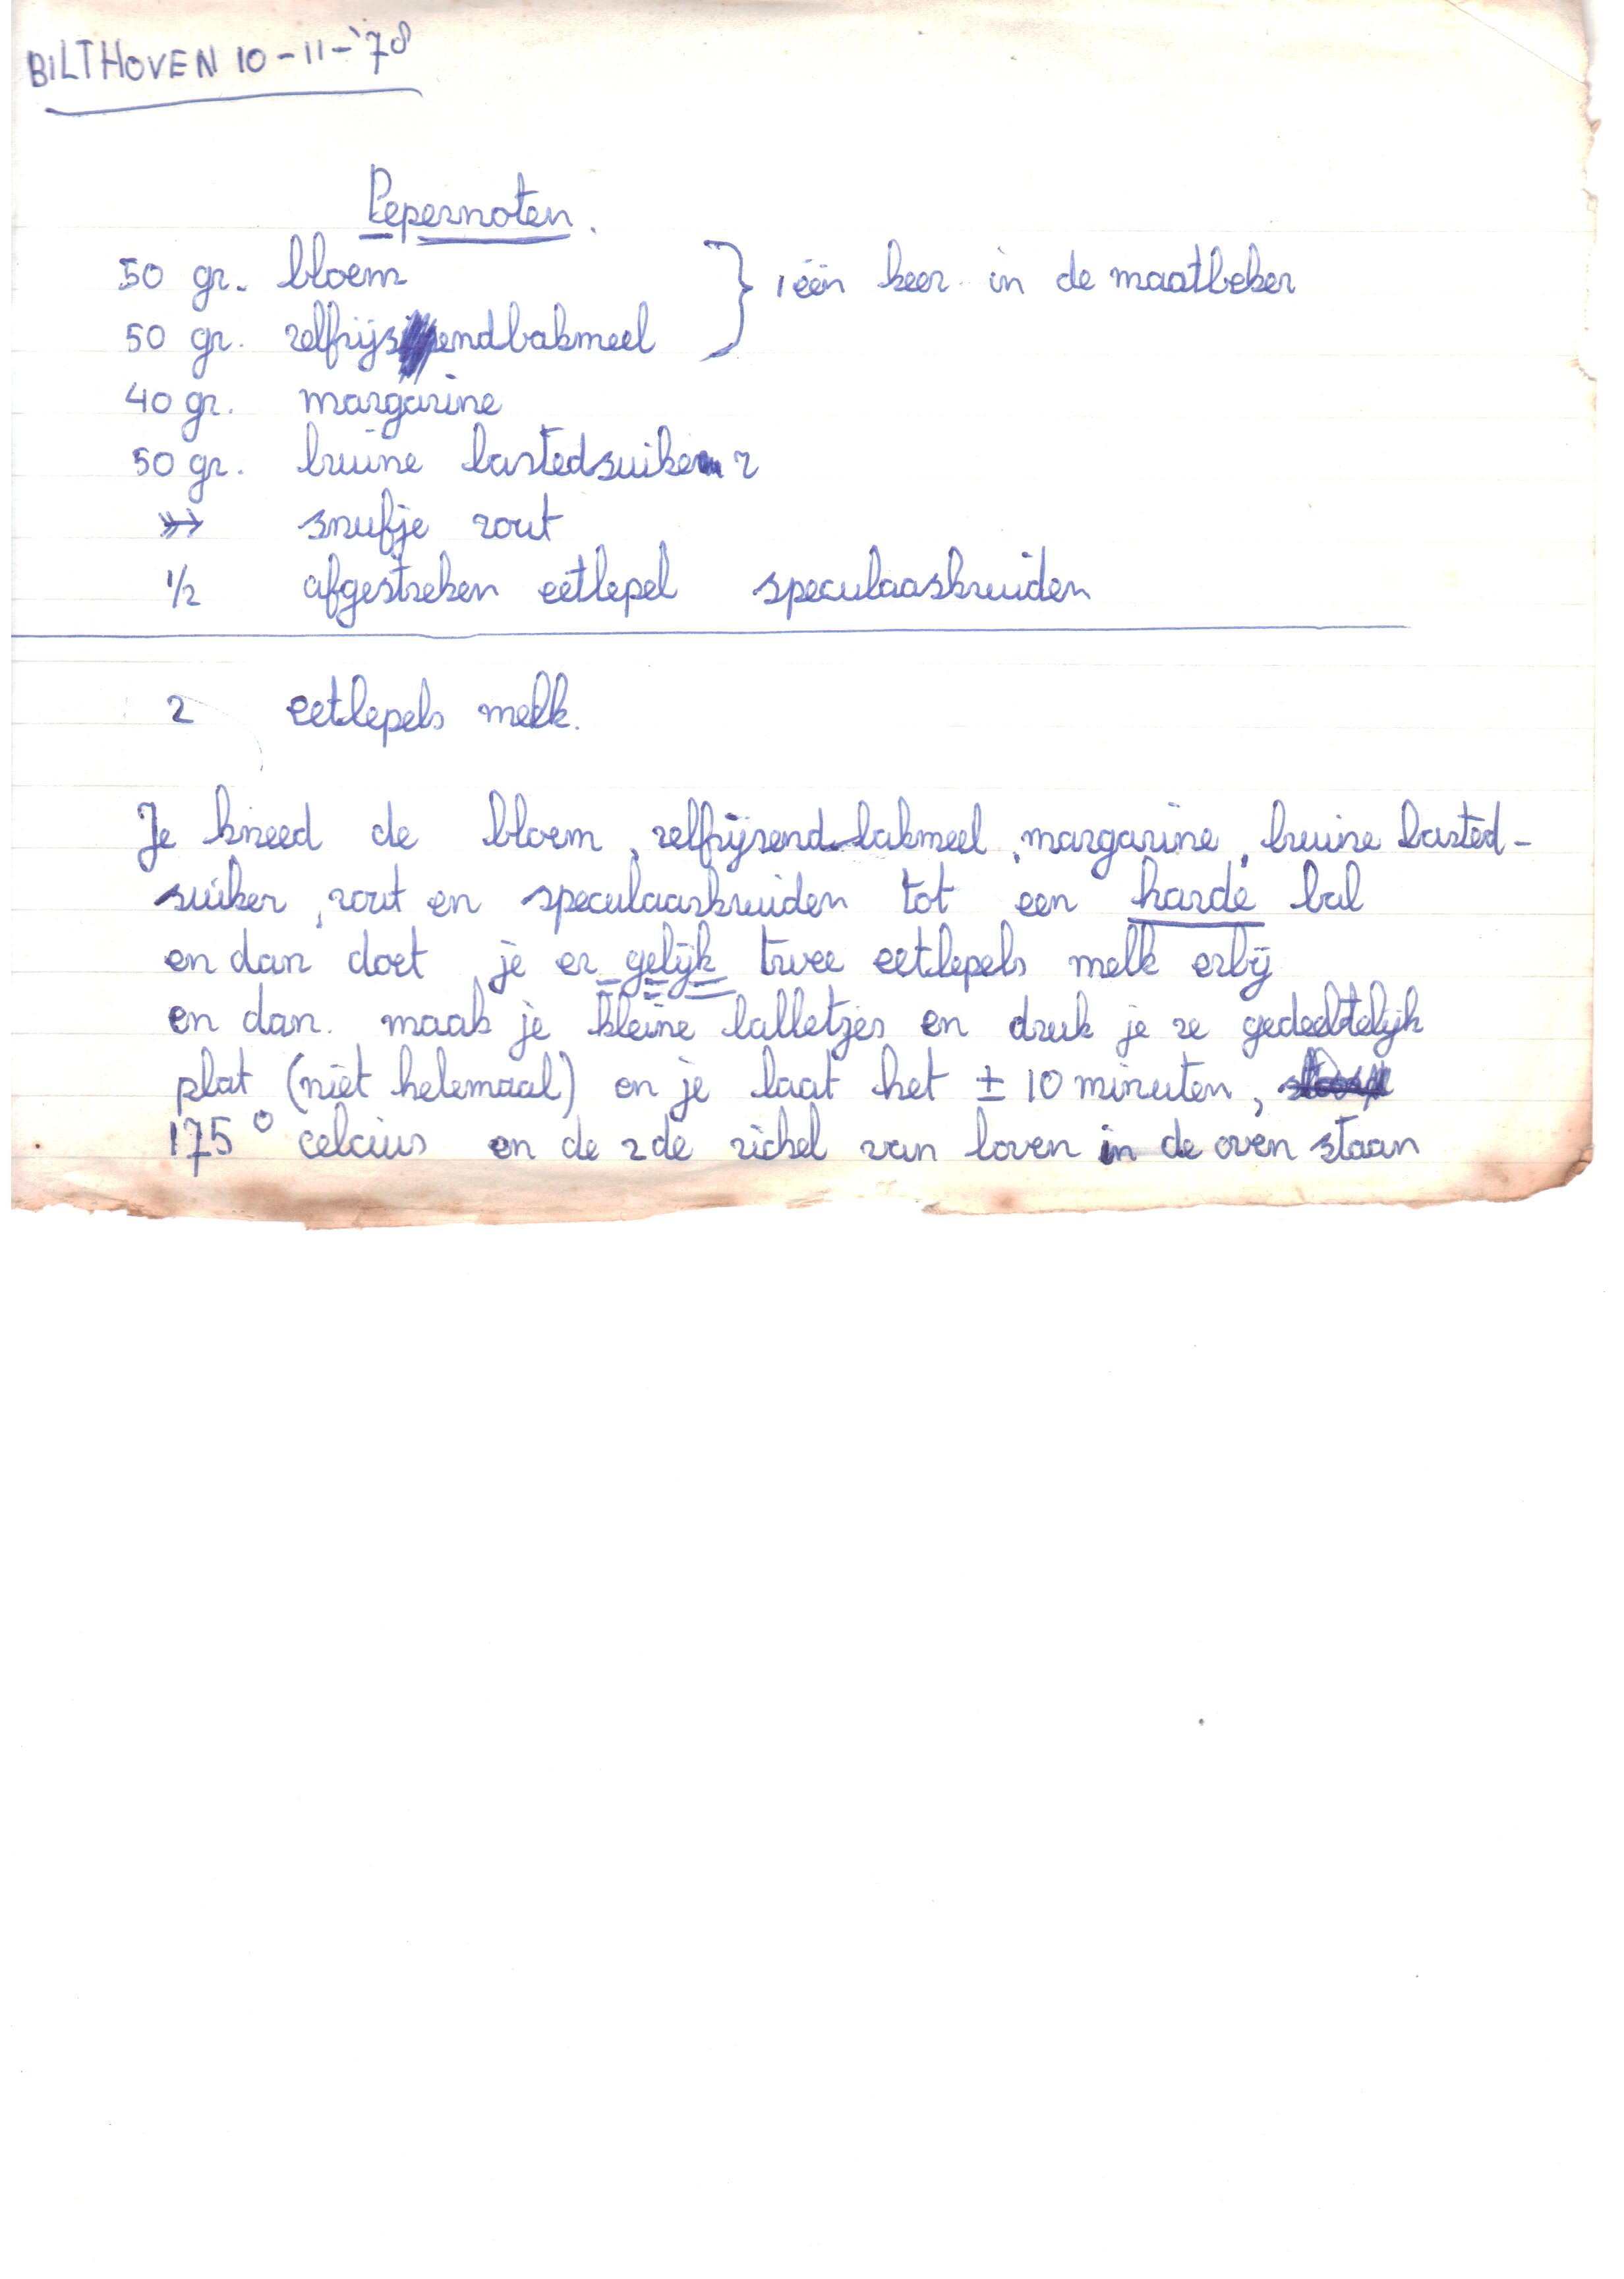 BILTHOVEN 10-11-'78
Pepernoten.
50 gr. bloem } 1 één keer in de maatbeker
50 gr. zelfrijsendbakmeel
40 gr. margarine
50 gr. bruine bastedsuiker
snufje zout
1/2 afgestreken eetlepel speculaaskruiden
2 eetlepels melk.
Je kneed de bloem, zelfrijsend bakmeel, margarine, bruine basted-
suiker, zout en speculaaskruiden tot een harde bal
en dan doet je er gelijk twee eetlepels melk erbij
en dan maak je kleine balletjes en druk je ze gedeeltelijk
plat (niet helemaal) en je laat het ± 10 minuten,
175° celcius en de 2de richel van boven in de oven staan